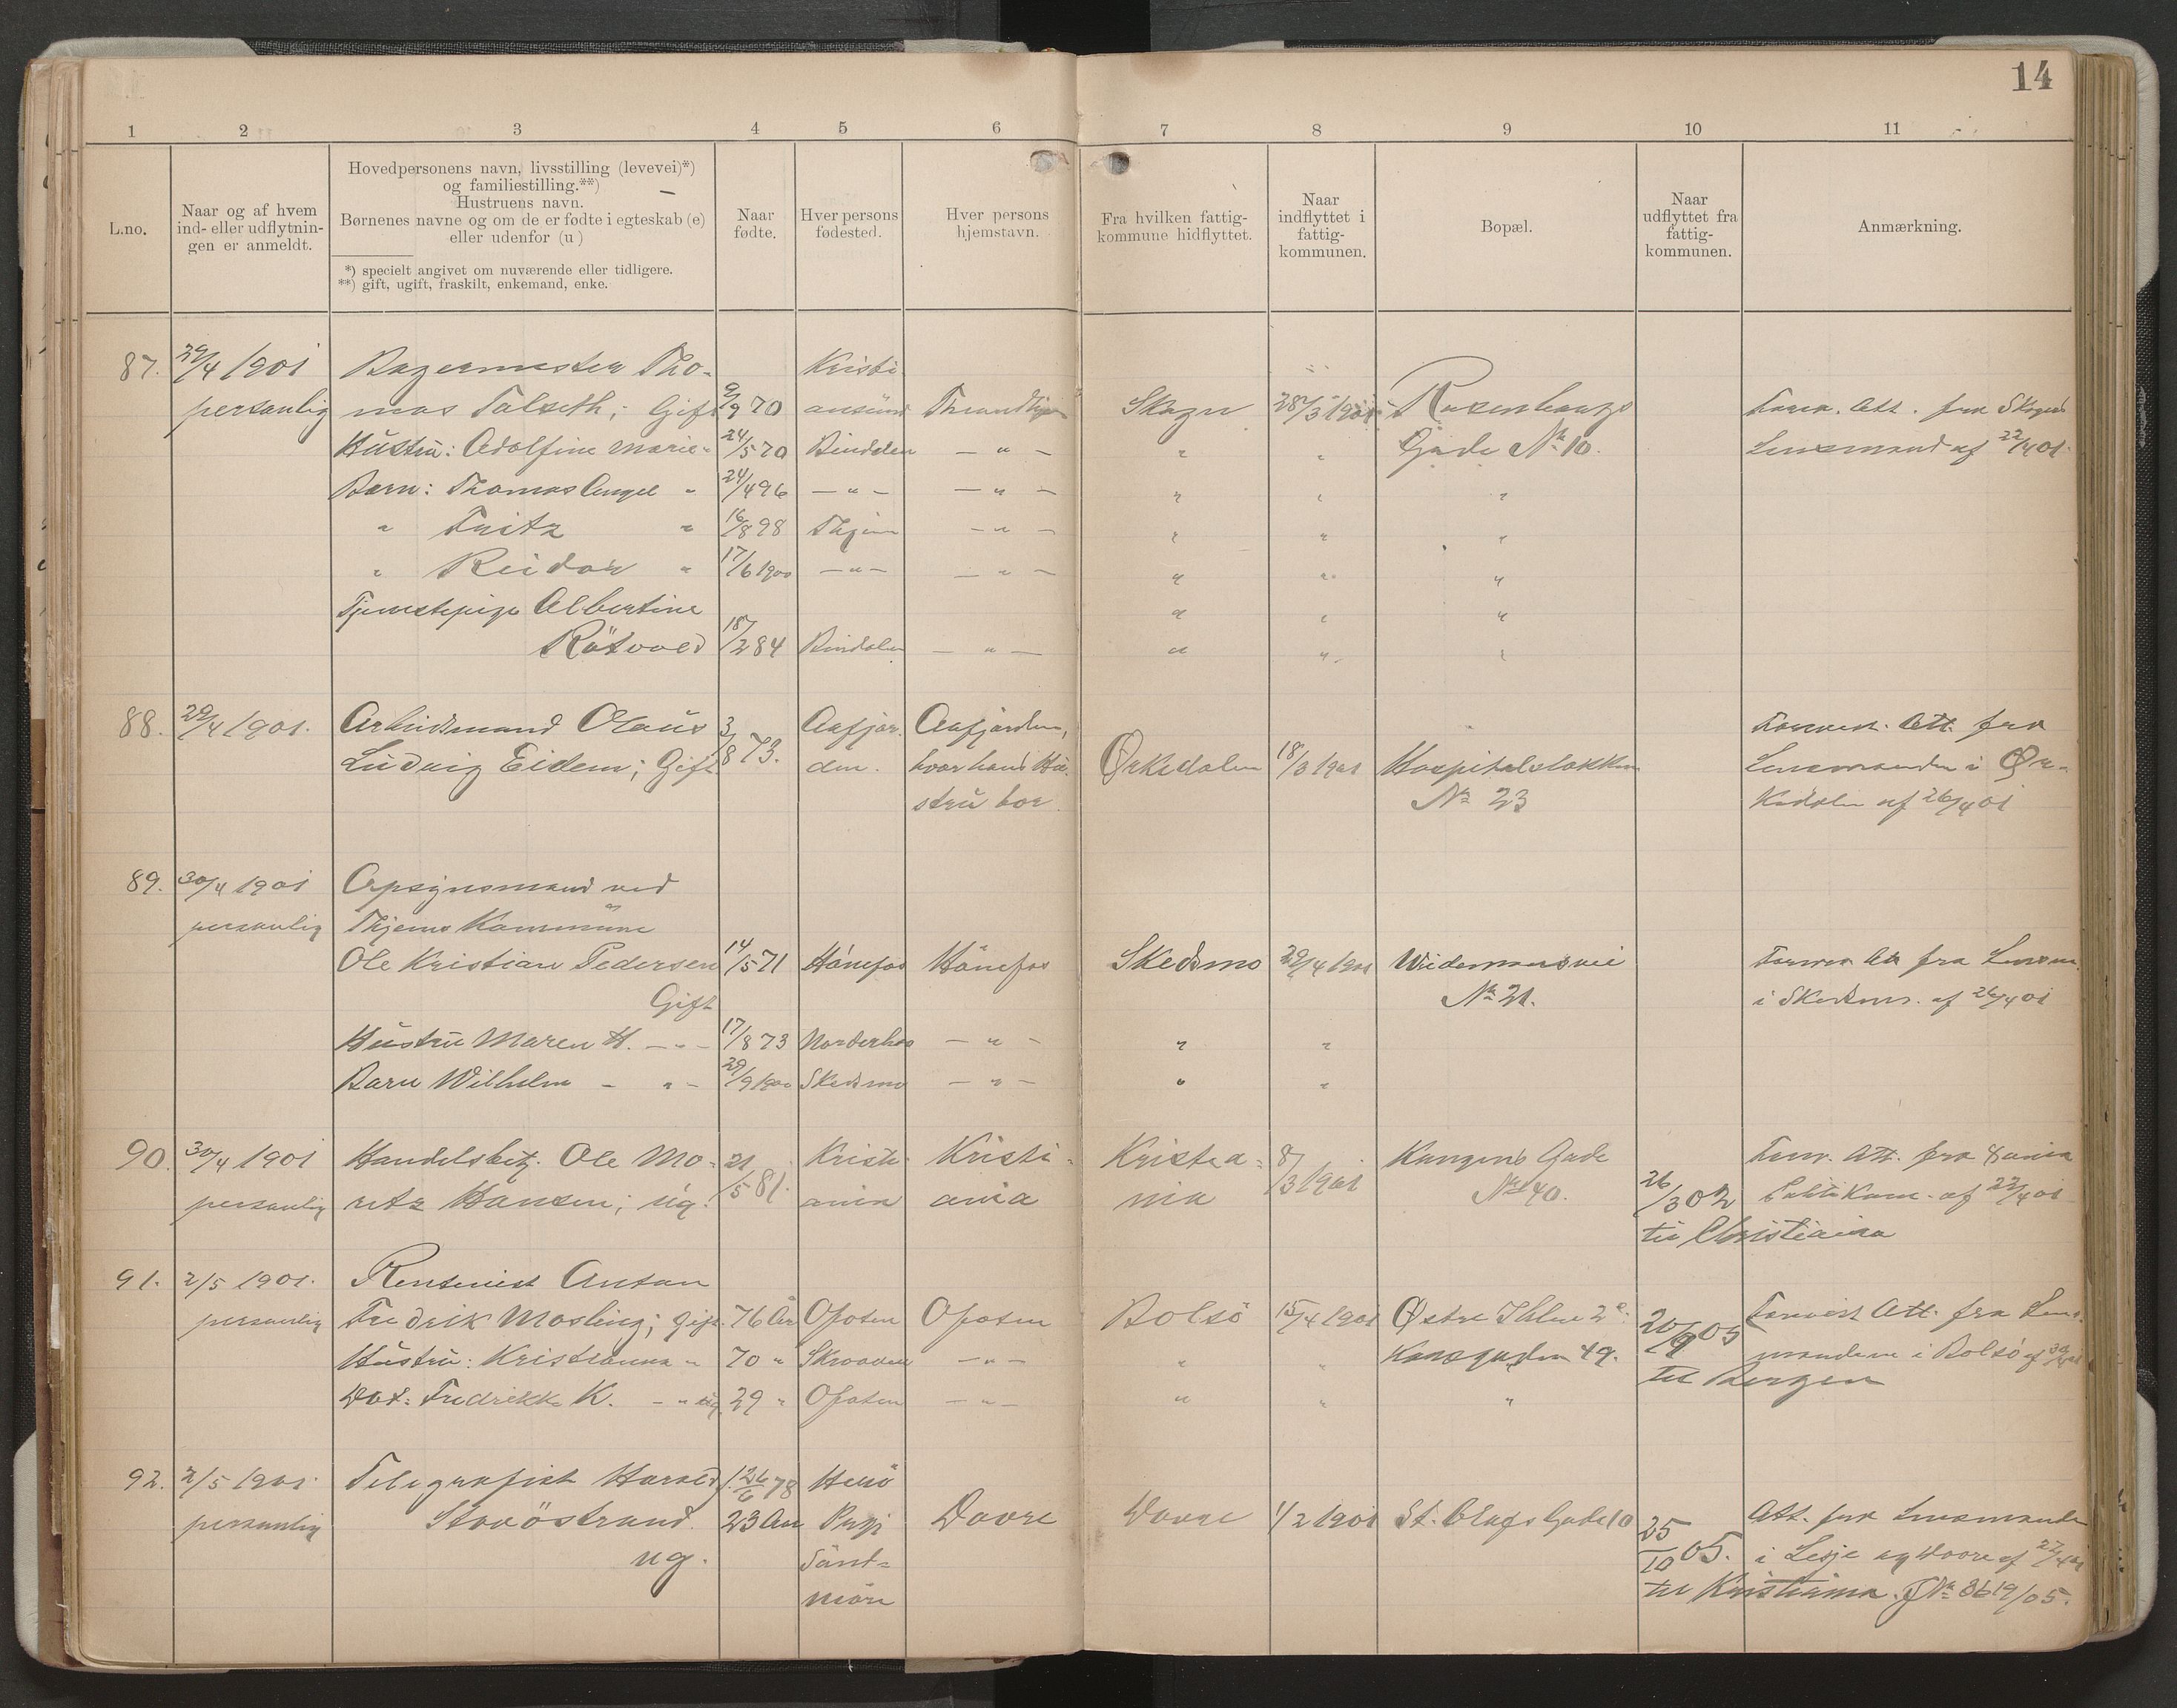 14
1 2 3 4 5 6 7 8 9 10 11
L.no.
Naar og af hvem
ind- eller udflytnin-
gen er anmeldt.
Hovedpersonens navn, livsstilling (levevei)*)
og familiestilling.**)
Hustruens navn.
Børnenes navne og om de er fødte i egteskab (e)
eller udenfor (u)
*) specielt angivet om nuværende eller tidligere.
**) gift, ugift, fraskilt, enkemand, enke.
Naar
fødte.
Hver persons
fødested.
Hver persons
hjemstavn.
Fra hvilken fattig-
kommune hidflyttet.
Naar
indflyttet i
fattig-
kommunen.
Bopæl.
Naar
udflyttet fra
fattig-
kommunen.
Anmærkning.
87. 29/4 1901 Tho- Kristi
personlig mas Talseth; Gift 9/9 70 ansund Skogn 28/3 1901 Rosenborgs
Hustru: Adolfine Marie " 24/5 70 Bindalen — " — " " Gade No 10. Lensmand af 22/4 01.
Barn: Thomas Angel " 24/4 96 — " — — " — " " "
" Fritz " 16/8 98 Thjem — " — " " "
" Reidar " 17/6 1900 — " — — " — " " "
Tjenestepige Albertine " " "
Rötvold 18/2 84 Bindalen — " — " " "
88. 29/4 1901. Arbeidsmand Olaus 3/8 73. Aafjor- Aafjorden, Att. fra
Ludvig Eidem; Gift den. hvor hans Hu- Ørkedalen 18/3 1901 Hospitalsløkken Lensmanden i Ør-
stru bor. No 23 kedalen af 26/4 01
89. 30/4 1901 Opsynsmand ved
personlig Thjems Kommune
Ole Kristian Pedersen 14/5 71 Hönefos Hönefos Skedsmo 29/4 1901 Widemansvei fra Lensm.
Gift No 21. i Skedsmo. af 26/4 01
Hustru Maren H. — " — 17/8 73 Norderhov — " — " "
Barn Wilhelm — " — 29/9 1900 Skedsmo — " — " "
90. 30/4 1901 Handelsbetj. Ole Mo- 21/5 81. Kristi- Kristi- Kristia- 8/3 1901 Kongens Gade Att. fra
personlig ritz Hansen; ug. ania ania nia No 40. 26/3 02 af 22/4 01
til Christiania
91. 2/5 1901. Rentenist Anton
personlig Fredrik Mosling; gift. 76 Aar Ofoten Ofoten Bolsö 15/4 1901 Østre Ihlen 20/9 05 Att. fra Lens-
Hustru: Kristianna " 70 " — " — " " 49. manden i Bolsö af
til Bergen
Dat: Fredrikke K. — " ug. 29 " Ofoten — " — " " "
92. 2/5 1901. Telegrafist Harald f. 26/6 78
personlig 23 Aar Dovre Dovre 1/2 1901 St. Olafs Gade 10 25/10 05. Att. fra Lensmanden
ug. Sönd- i Lesje og Dovre af 27/4 01
möre til Kristiania. J No 3619/05.